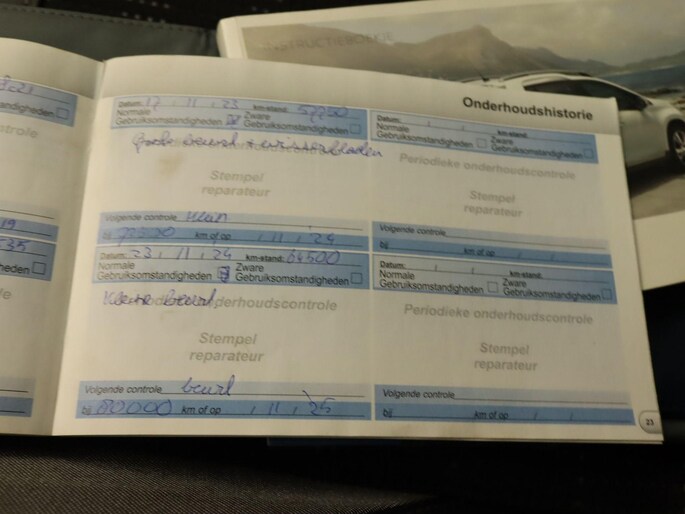 INSTRUCTIEBOEKJE
Onderhoudshistorie
Datum: 17 , 11 , 23 km-stand: 57750
Normale Gebruiksomstandigheden
Zware Gebruiksomstandigheden
Grote beurt + wisserbladen
Stempel
reparateur
Volgende controle Klein
bij km of op , 11 , 24
Datum: 23 , 11 , 24 km-stand: 64500
Normale Gebruiksomstandigheden
Zware Gebruiksomstandigheden
Kleine beurt
onderhoudscontrole
Stempel
reparateur
Volgende controle beurt
bij 80000 km of op , 11 , 25
Datum: , , km-stand:
Normale Gebruiksomstandigheden
Zware Gebruiksomstandigheden
Periodieke onderhoudscontrole
Stempel
reparateur
Volgende controle
bij km of op , ,
Datum: , , km-stand:
Normale Gebruiksomstandigheden
Zware Gebruiksomstandigheden
Periodieke onderhoudscontrole
Stempel
reparateur
Volgende controle
bij km of op , ,
23